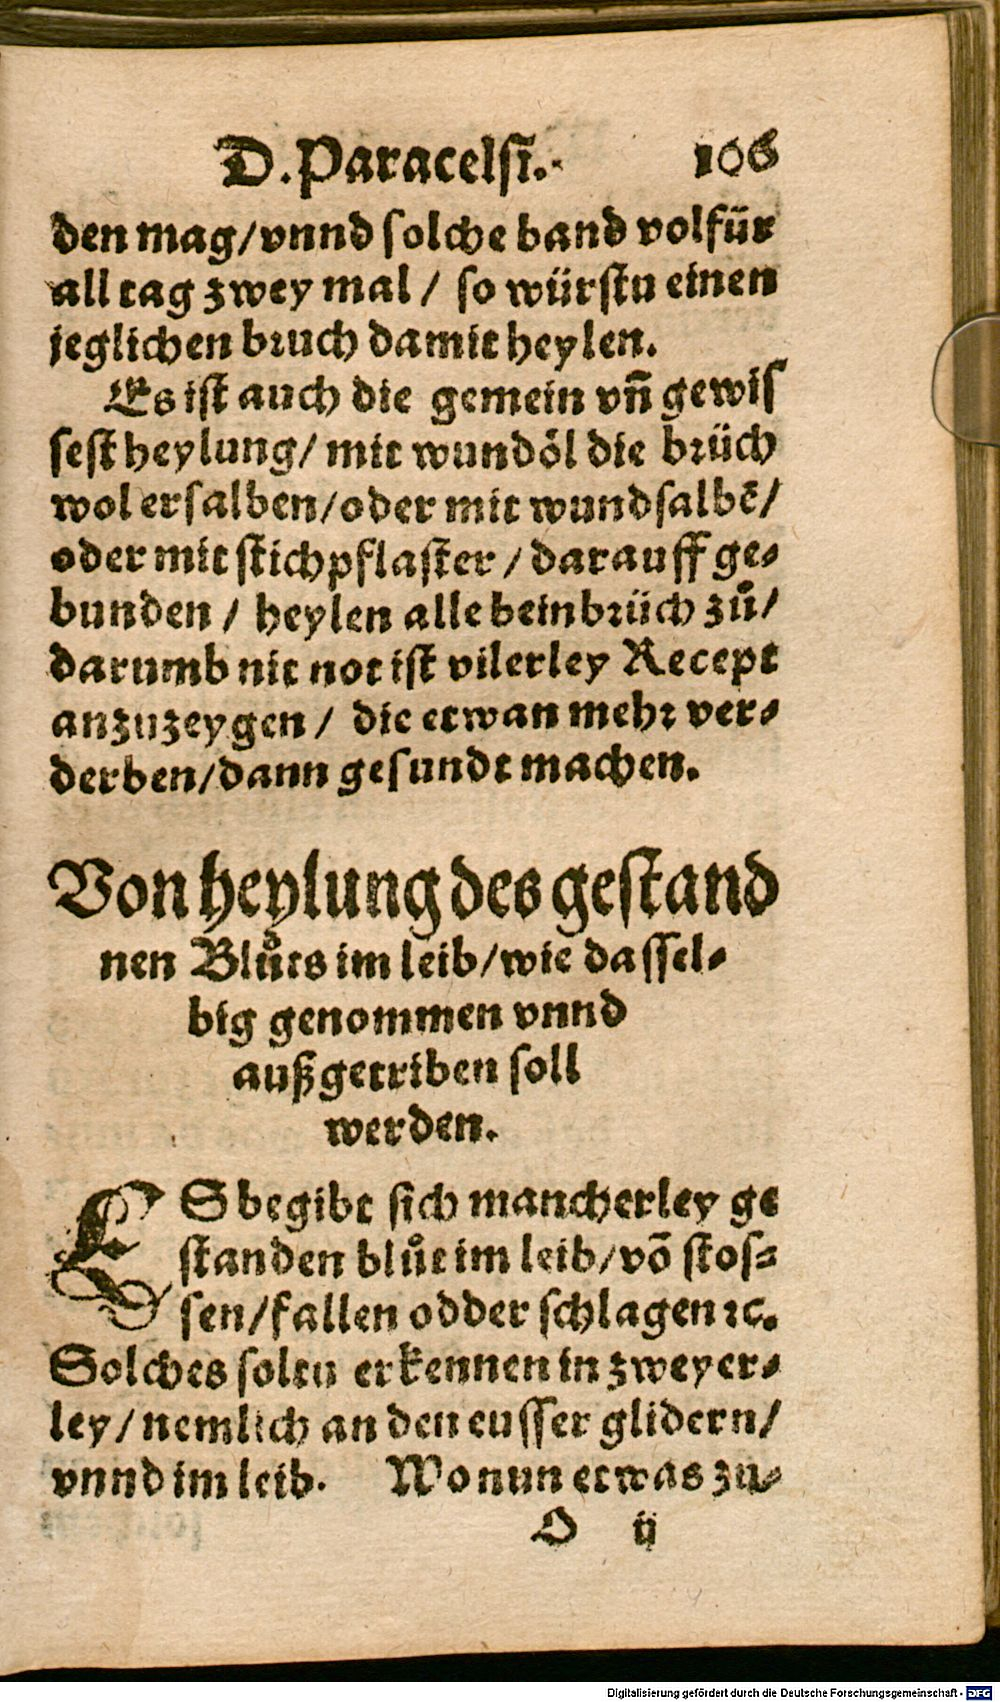 D. Paracelsi. 106
den mag/ vnnd solche band volfür
all tag zwey mal / so würstu einen
jeglichen bruch damit heylen.
Es ist auch die gemein vñ gewis
sest heylung/ mit wundöl die brüch
wol ersalben/ oder mit wundsalbē/
oder mit stichpflaster / darauff ge-
bunden / heylen alle beinbrüch zů/
darumb nit not ist vilerley Recept
anzuzeygen / die etwan mehr ver-
derben/ dann gesundt machen.
Von heylung des gestand
nen Blůts im leib/ wie dassel-
big genommen vnnd
außgetriben soll
werden.
ES begibt sich mancherley ge
standen blůt im leib/ võ stos-
sen/ fallen odder schlagen ꝛc.
Solches soltu erkennen in zweyer-
ley/ nemlich an den eusser glidern/
vnnd im leib. Wo nun etwas zu-
O ij
Digitalisierung gefördert durch die Deutsche Forschungsgemeinschaft - DFG